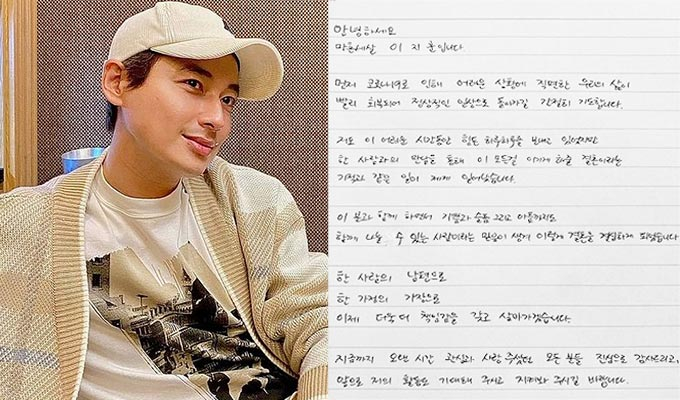 안녕하세요
만흔세살 이지훈입니다.
먼저 코로나19로 인해 어려운 상황에 직면한 우리의 삶이
빨리 회복되어 정상적인 일상으로 돌아가길 간절히 기도합니다.
저도 이 어려운 시간동안 힘든 하루하루를 보내고 있었지만
한 사람과의 만남을 통해 이 모든걸 이기게 하는 결혼이라는
기적과 같은 일이 제게 일어났습니다.
이 분과 함께 하면서 기쁨과 슬픔 그리고 아픔까지도
함께 나눌 수 있는 사람이라는 믿음이 생겨 이렇게 결혼을 결심하게 되었습니다
한 사람의 남편으로
한 가정의 가장으로
이제 더욱 더 책임감을 갖고 살아가겠습니다.
지금까지 오랜 시간 관심과 사랑 주셨던 모든 분들 진심으로 감사드리고,
앞으로 저의 활동도 기대해 주시고 지켜봐 주시길 바랍니다.